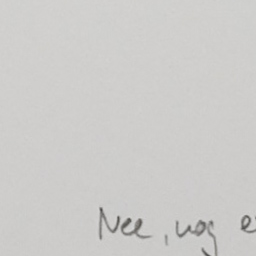 Nee, nog